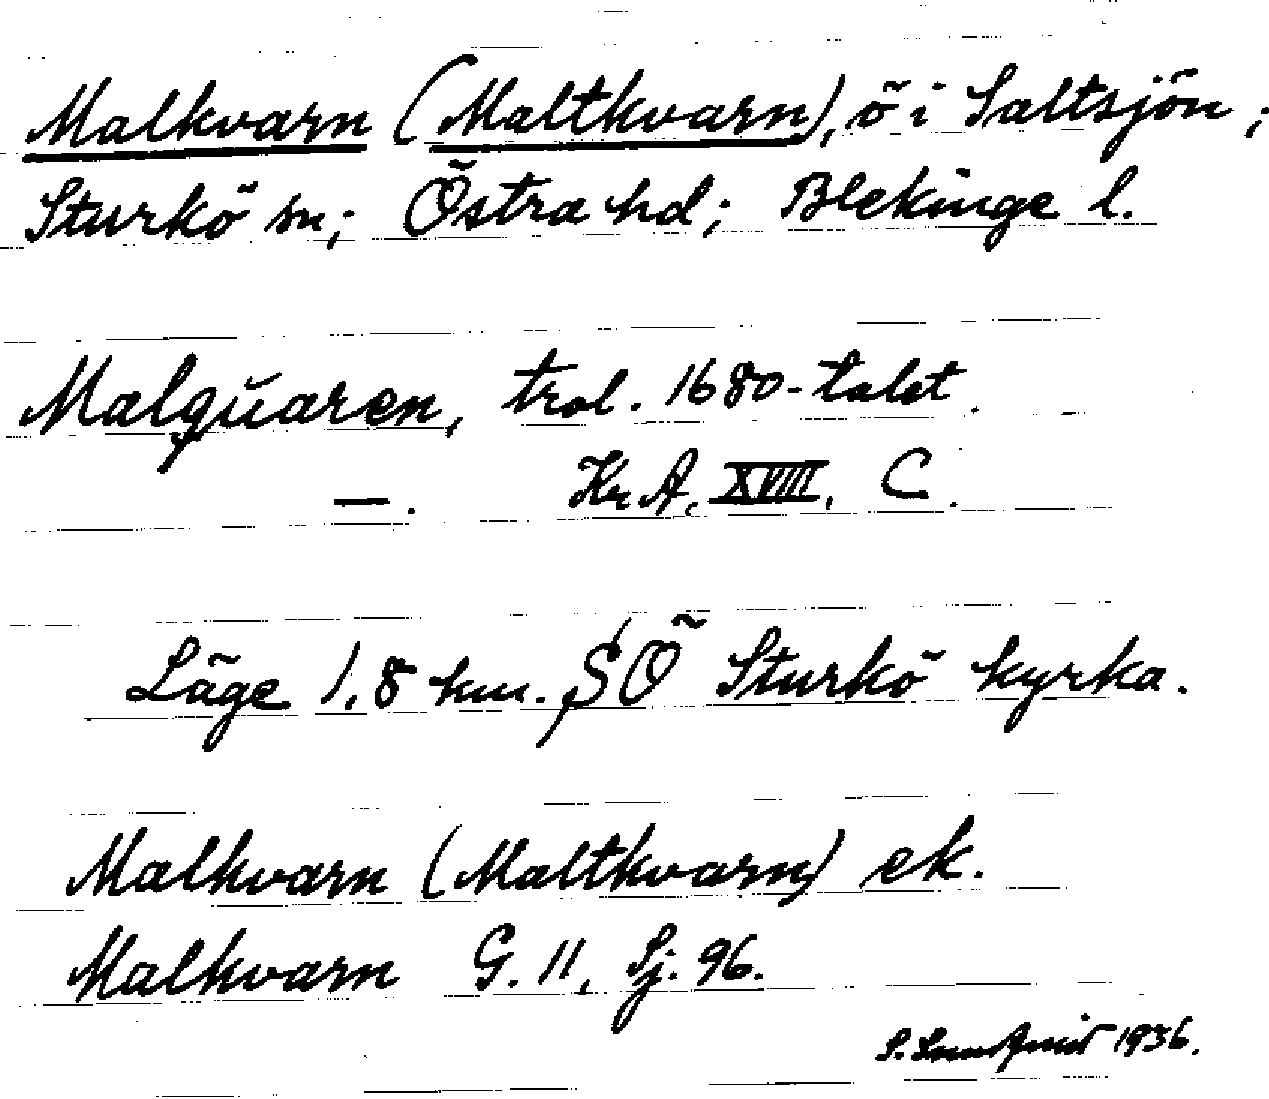 Malkvarn (Maltkvarn), ö i Saltsjön;
Sturkö sn; Östra hd; Blekinge l.
Malquaren, trol. 1680-talet.
—. Kr A, XVIII, C.
Läge 1,8 km. SÖ Sturkö kyrka.
Malkvarn (Maltkvarn) ek.
Malkvarn G. 11, Sj. 96.
S. 1936.